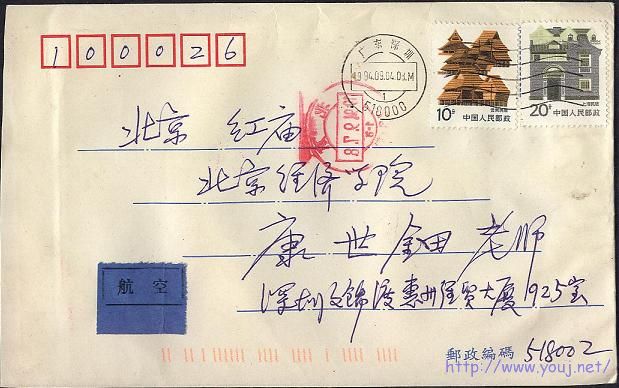 100026
广东 深圳
510000
10分
中国人民邮政
20分
上海民居
中国人民邮政
北京 红庙
北京经济学院
康世钿 老师
航空
深圳文锦渡惠州经贸大厦1925室
郵政编碼 518002
http://www.youj.net/